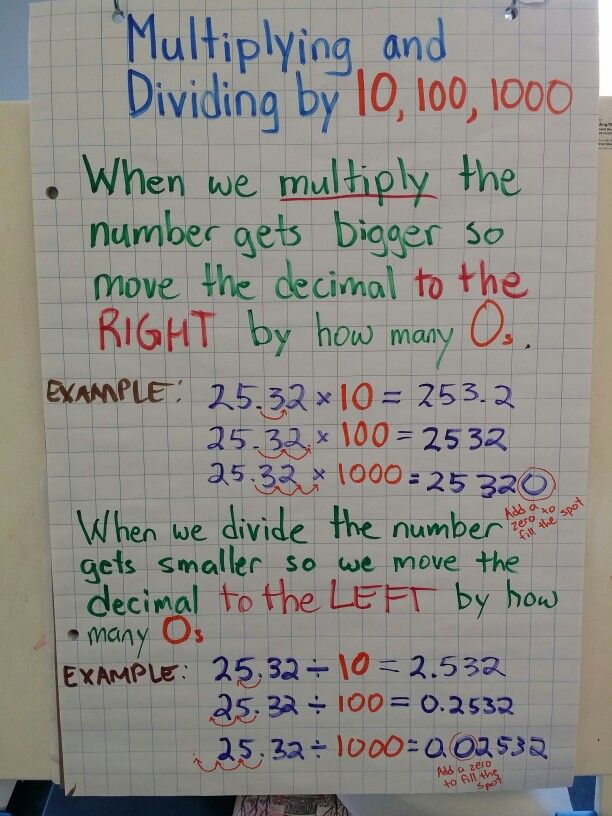 Multiplying and
Dividing by 10, 100, 1000
When we multiply the
number gets bigger so
move the decimal to the
RIGHT by how many 0s.
EXAMPLE: 25.32 × 10 = 253.2
25.32 × 100 = 2532
25.32 × 1000 = 25 320
Add a
zero to
fill the spot
When we divide the number
gets smaller so we move the
decimal to the LEFT by how
many 0s
EXAMPLE: 25.32 ÷ 10 = 2.532
25.32 ÷ 100 = 0.2532
25.32 ÷ 1000 = 0.02532
Add a zero
to fill the
spot